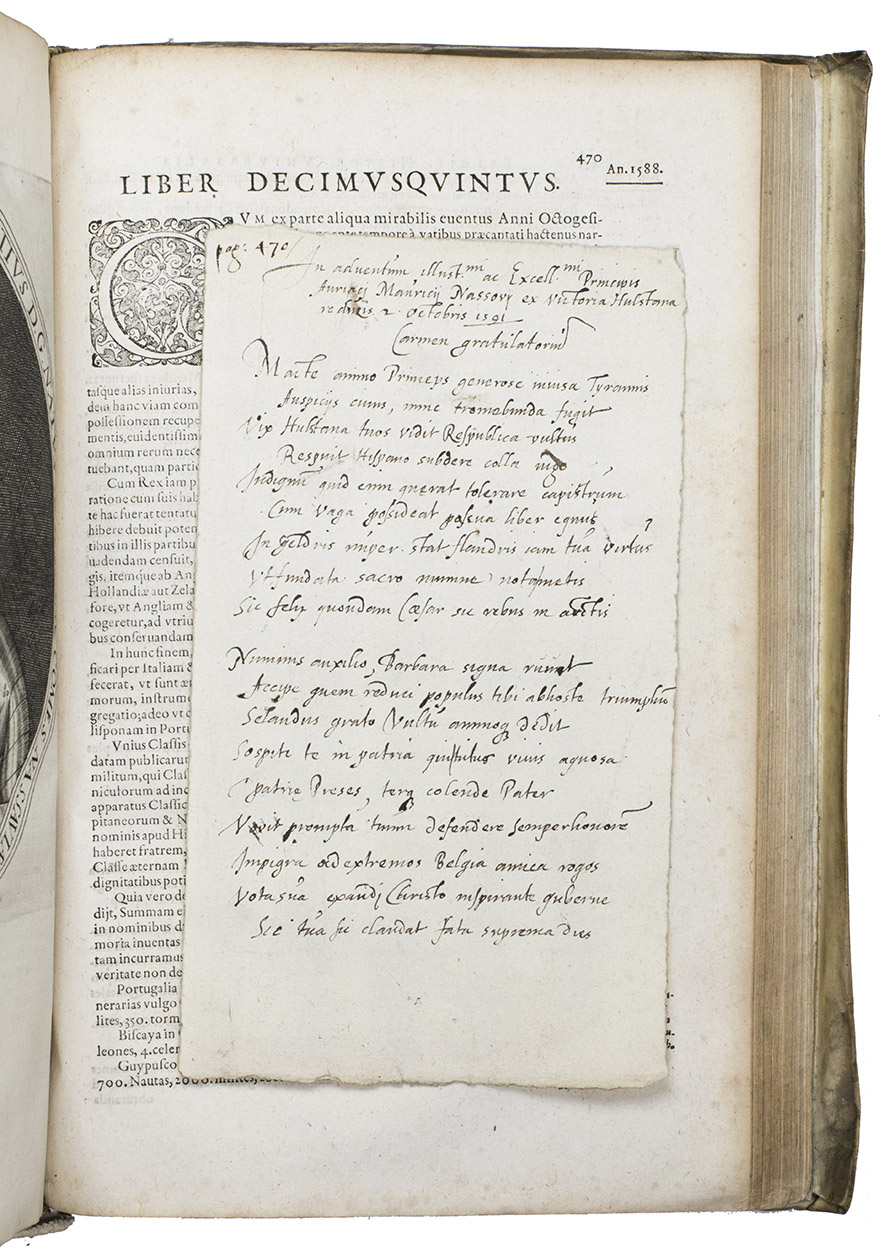 470
An. 1588.
LIBER DECIMVSQVINTVS.
VM ex parte aliqua mirabilis eventus Anni Octogesi-
tempore à vatibus præcantati hactenus nar-
tasque alias iniurias,
dem hanc viam com
possessionem recupe
mentis, euidentissim
omnium rerum nece
tuebant, quam partic
Cum Rex iam p
ratione cum suis hab
te hac fuerat tentatu
hibere debuit poten
tibus in illis partibu
uadendam censuit,
gis, itemque ab An
Hollandiæ aut Zela
fore, vt Angliam &
cogeretur, ad vtriu
bus conseruandam
In hunc finem,
ficari per Italiam &
fecerat, vt sunt
morum, instrum
gregatio; adeo vt c
lisponam in Port
Vnius Classis
datam publicarun
militum, qui Clas
niculorum ad inc
apparatus Classic
pitaneorum & N
nominis apud Hi
haberet fratrem,
Classe æternam
dignitatibus poti
Quia vero de
dijt, Summam e
in nominibus d
moria inuentas
tam incurramus
veritate non de
Portugalia
nerarias vulgo
lites, 350. torm
Biscaya in
leones, 4. celer
Guypusco
700. Nautas, 2000.
pag: 470
In adventum illust.mi ac Excell.mi Principis
Auriacj Mauricij Nassovij ex victoria Hulstana
reducis 2. Octobris 1591
Carmen gratulatoriũ
Macte animo Princeps generose invisa Tyrannis
Auspicijs cuius, nunc tremebunda fugit
Vix Hulstana tuos vidit Respublica vultus
Respuit Hispano subdere colla iugo
Indignũ quid enim querat tolerare capistrum
Cum vaga possideat pascua liber equus
In geldris nuper stat flandris iam tua virtus
Vt fundata sacro numine
Sic felix quondam Cæsar sic rebus in arctis
Numinis auxilio, Barbara signa
Accipe quem reduci populus tibi ab hoste triumphũ
Selandus grato vultu animoq dedit
Sospite te in patria virtutibus vivis
patriæ Preses, terq colende Pater
Vovit prompta tuum defendere semper honorẽ
Impigra ad extremos Belgia amica rogos
Vota sua exaudj Christo inspirante guberne
Sic tua sic claudat fata suprema dies